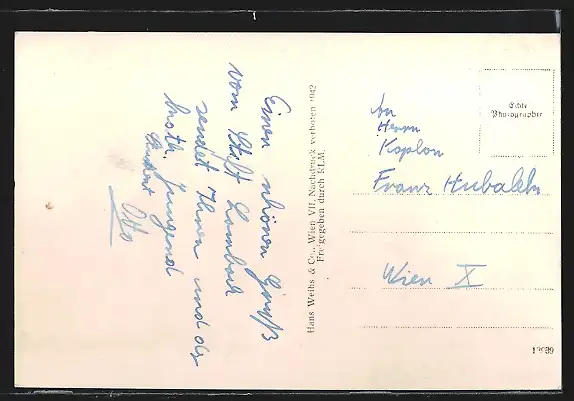 Einen schönen Gruß
vom Stift Lambach
sendet Ihnen und der
kath. Jugend
Otto
Hans Weihs & Co., Wien VII. Nachdruck verboten 1942
Freigegeben durch RLM.
Echte
Photographie
An
Herrn
Kaplan
Franz
Wien X